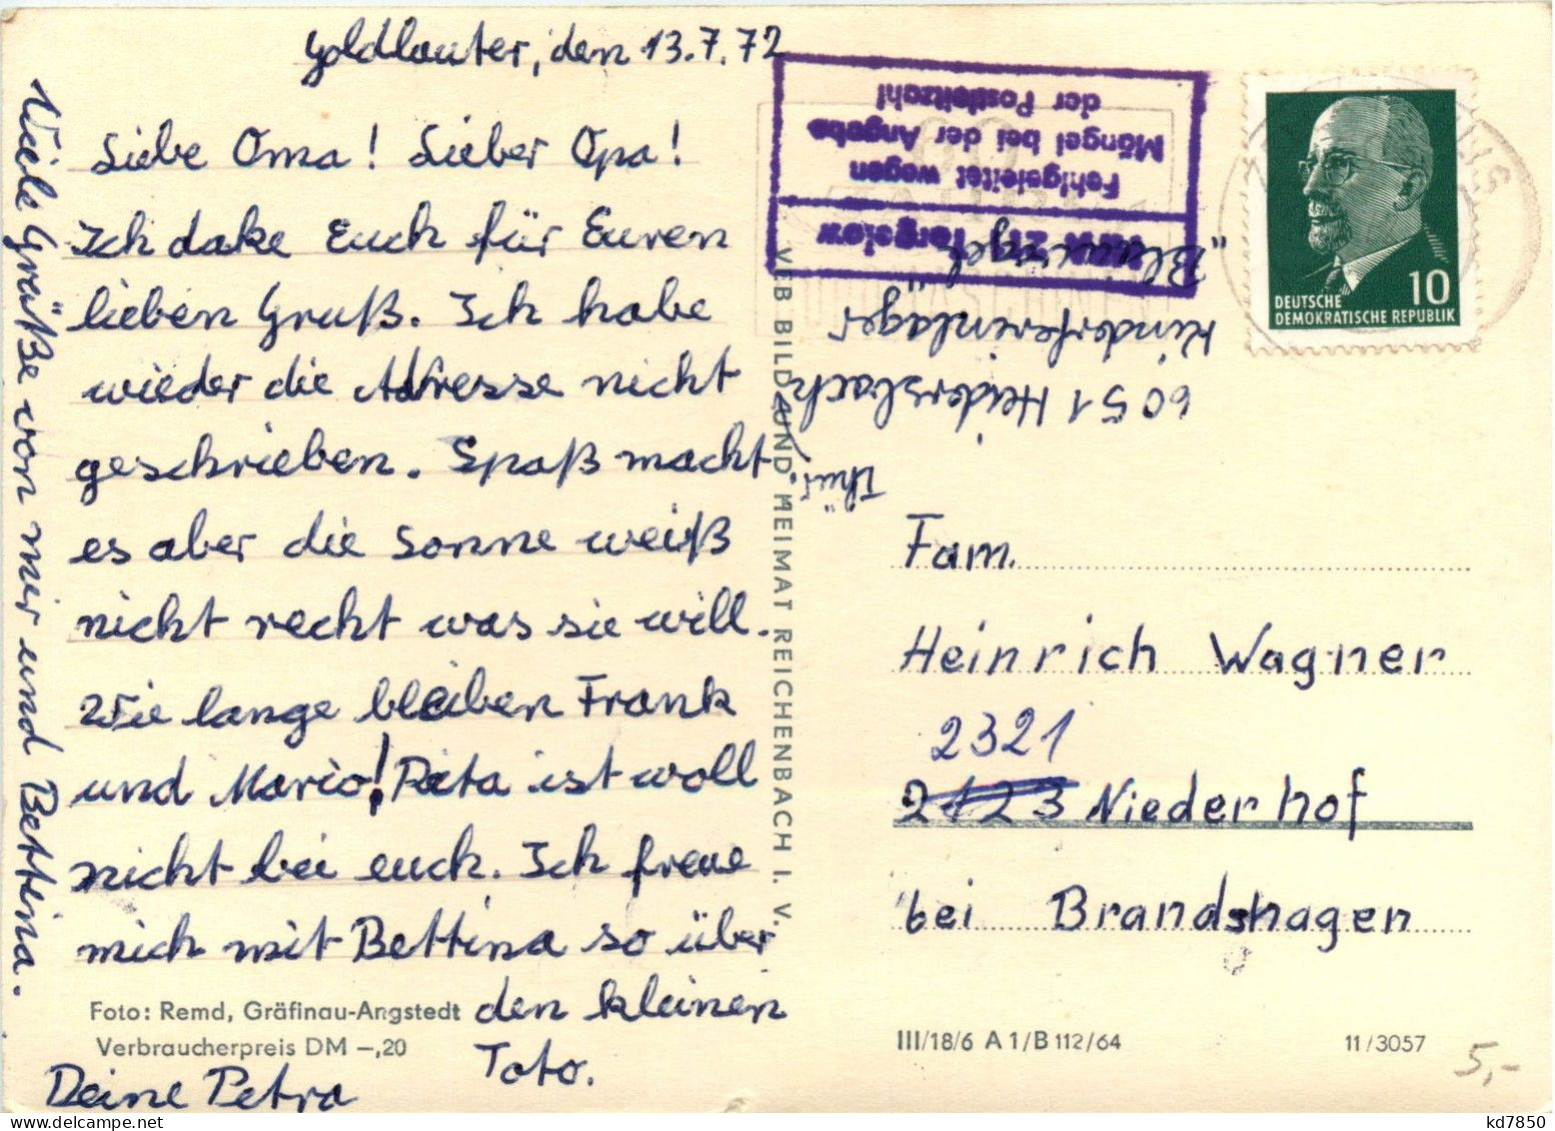 Goldlauter, den 13.7.72
Liebe Oma! Lieber Opa!
Ich dake Euch für Euren
lieben Gruß. Ich habe
wieder die Adresse nicht
geschrieben. Spaß macht
es aber die Sonne weiß
nicht recht was sie will.
Wie lange bleiben Frank
und Mario! Peta ist woll
nicht bei euch. Ich freue
mich mit Bettina so über
den kleinen
Toto.
Deine Petra
Viele Grüße von mir und Bettina.
Foto: Remd, Gräfinau-Angstedt
Verbraucherpreis DM –,20
VEB BILD UND HEIMAT REICHENBACH I. V.
Torgelow
Fehlgeleitet wegen
Mängel bei der Angabe
der Postleitzahl
"Blauvogel"
Kinderferienlager
6051 Heidersbach
Thür.
DEUTSCHE
DEMOKRATISCHE REPUBLIK
10
Fam.
Heinrich Wagner
2321
2123 Niederhof
bei Brandshagen
III/18/6 A 1/B 112/64
11/3057
5,-
kd7850